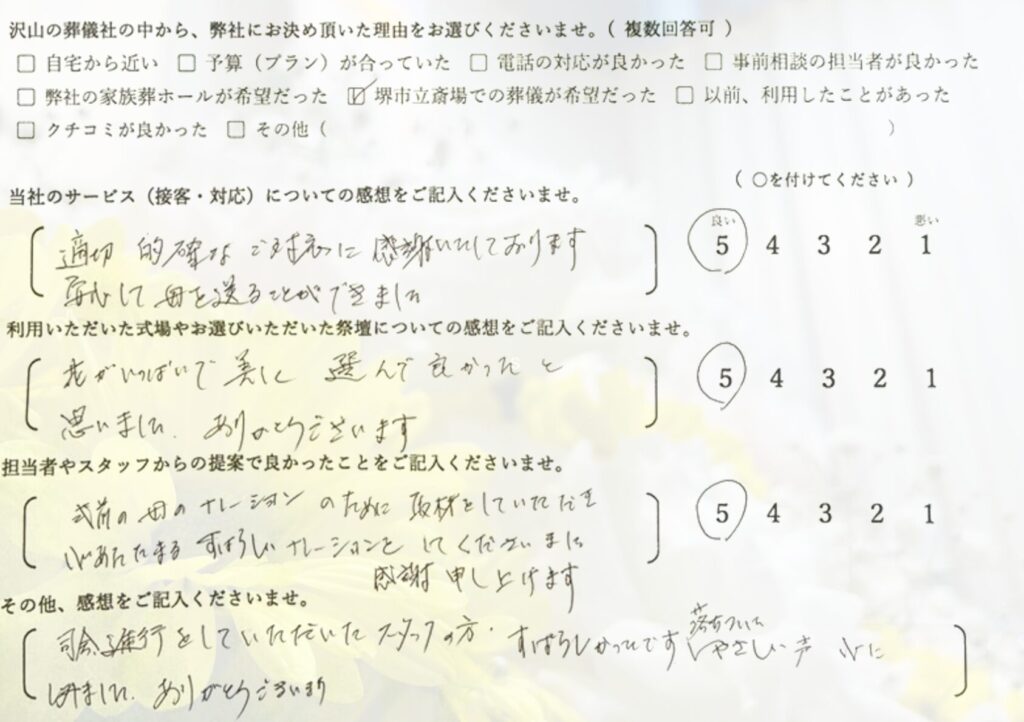 沢山の葬儀社の中から、弊社にお決め頂いた理由をお選びくださいませ。( 複数回答可 )
□ 自宅から近い □ 予算（プラン）が合っていた □ 電話の対応が良かった □ 事前相談の担当者が良かった
□ 弊社の家族葬ホールが希望だった ☑ 堺市立斎場での葬儀が希望だった □ 以前、利用したことがあった
□ クチコミが良かった □ その他（ ）
当社のサービス（接客・対応）についての感想をご記入くださいませ。
( ○を付けてください )
良い 悪い
適切 的確な ご対応に 感謝いたしております
5 4 3 2 1
安心して 母を送ることができました
利用いただいた式場やお選びいただいた祭壇についての感想をご記入くださいませ。
花がいっぱいで 選んで 良かった と
5 4 3 2 1
思いました. ありがとうございます
担当者やスタッフからの提案で良かったことをご記入くださいませ。
式前の 母の ナレーション のために 取材をしていただき
5 4 3 2 1
心あたたまる すばらしい ナレーションと してくださいました
感謝 申し上げます
その他、感想をご記入くださいませ。
落ちついた
司会進行をしていただいた スタッフの方. すばらしかったです やさしい 声 心に
しみました. ありがとうございます